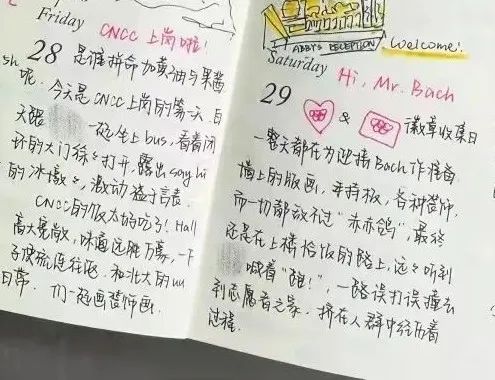 Friday
CNCC 上岗啦！
28 是谁拼命加黄油与果酱
sh 呢。今天是CNCC上岗的第一天，白
天跟 一起坐上bus，看着闭
环的大门徐徐打开，露出say hi
的"冰墩"，激动溢于言表。
CNCC的饭太好吃了！Hall
高大宽敞，味道远胜万豪，一下
子便流连往返，和北大的uu
们一起画装饰画。
日常
ABBY'S RECEPTION
Welcome!
Saturday
Hi, Mr. Bach
29 & 徽章收集日
一整天都在为迎接Bach作准备
墙上的版画，手持板，各种装饰，
而一切都放不过"赤赤鸽"，最终
还是在上楼恰饭的路上，远远听到
喊着"跑！"，一路误打误撞去
到志愿者之家，挤在人群中经历着
过程.